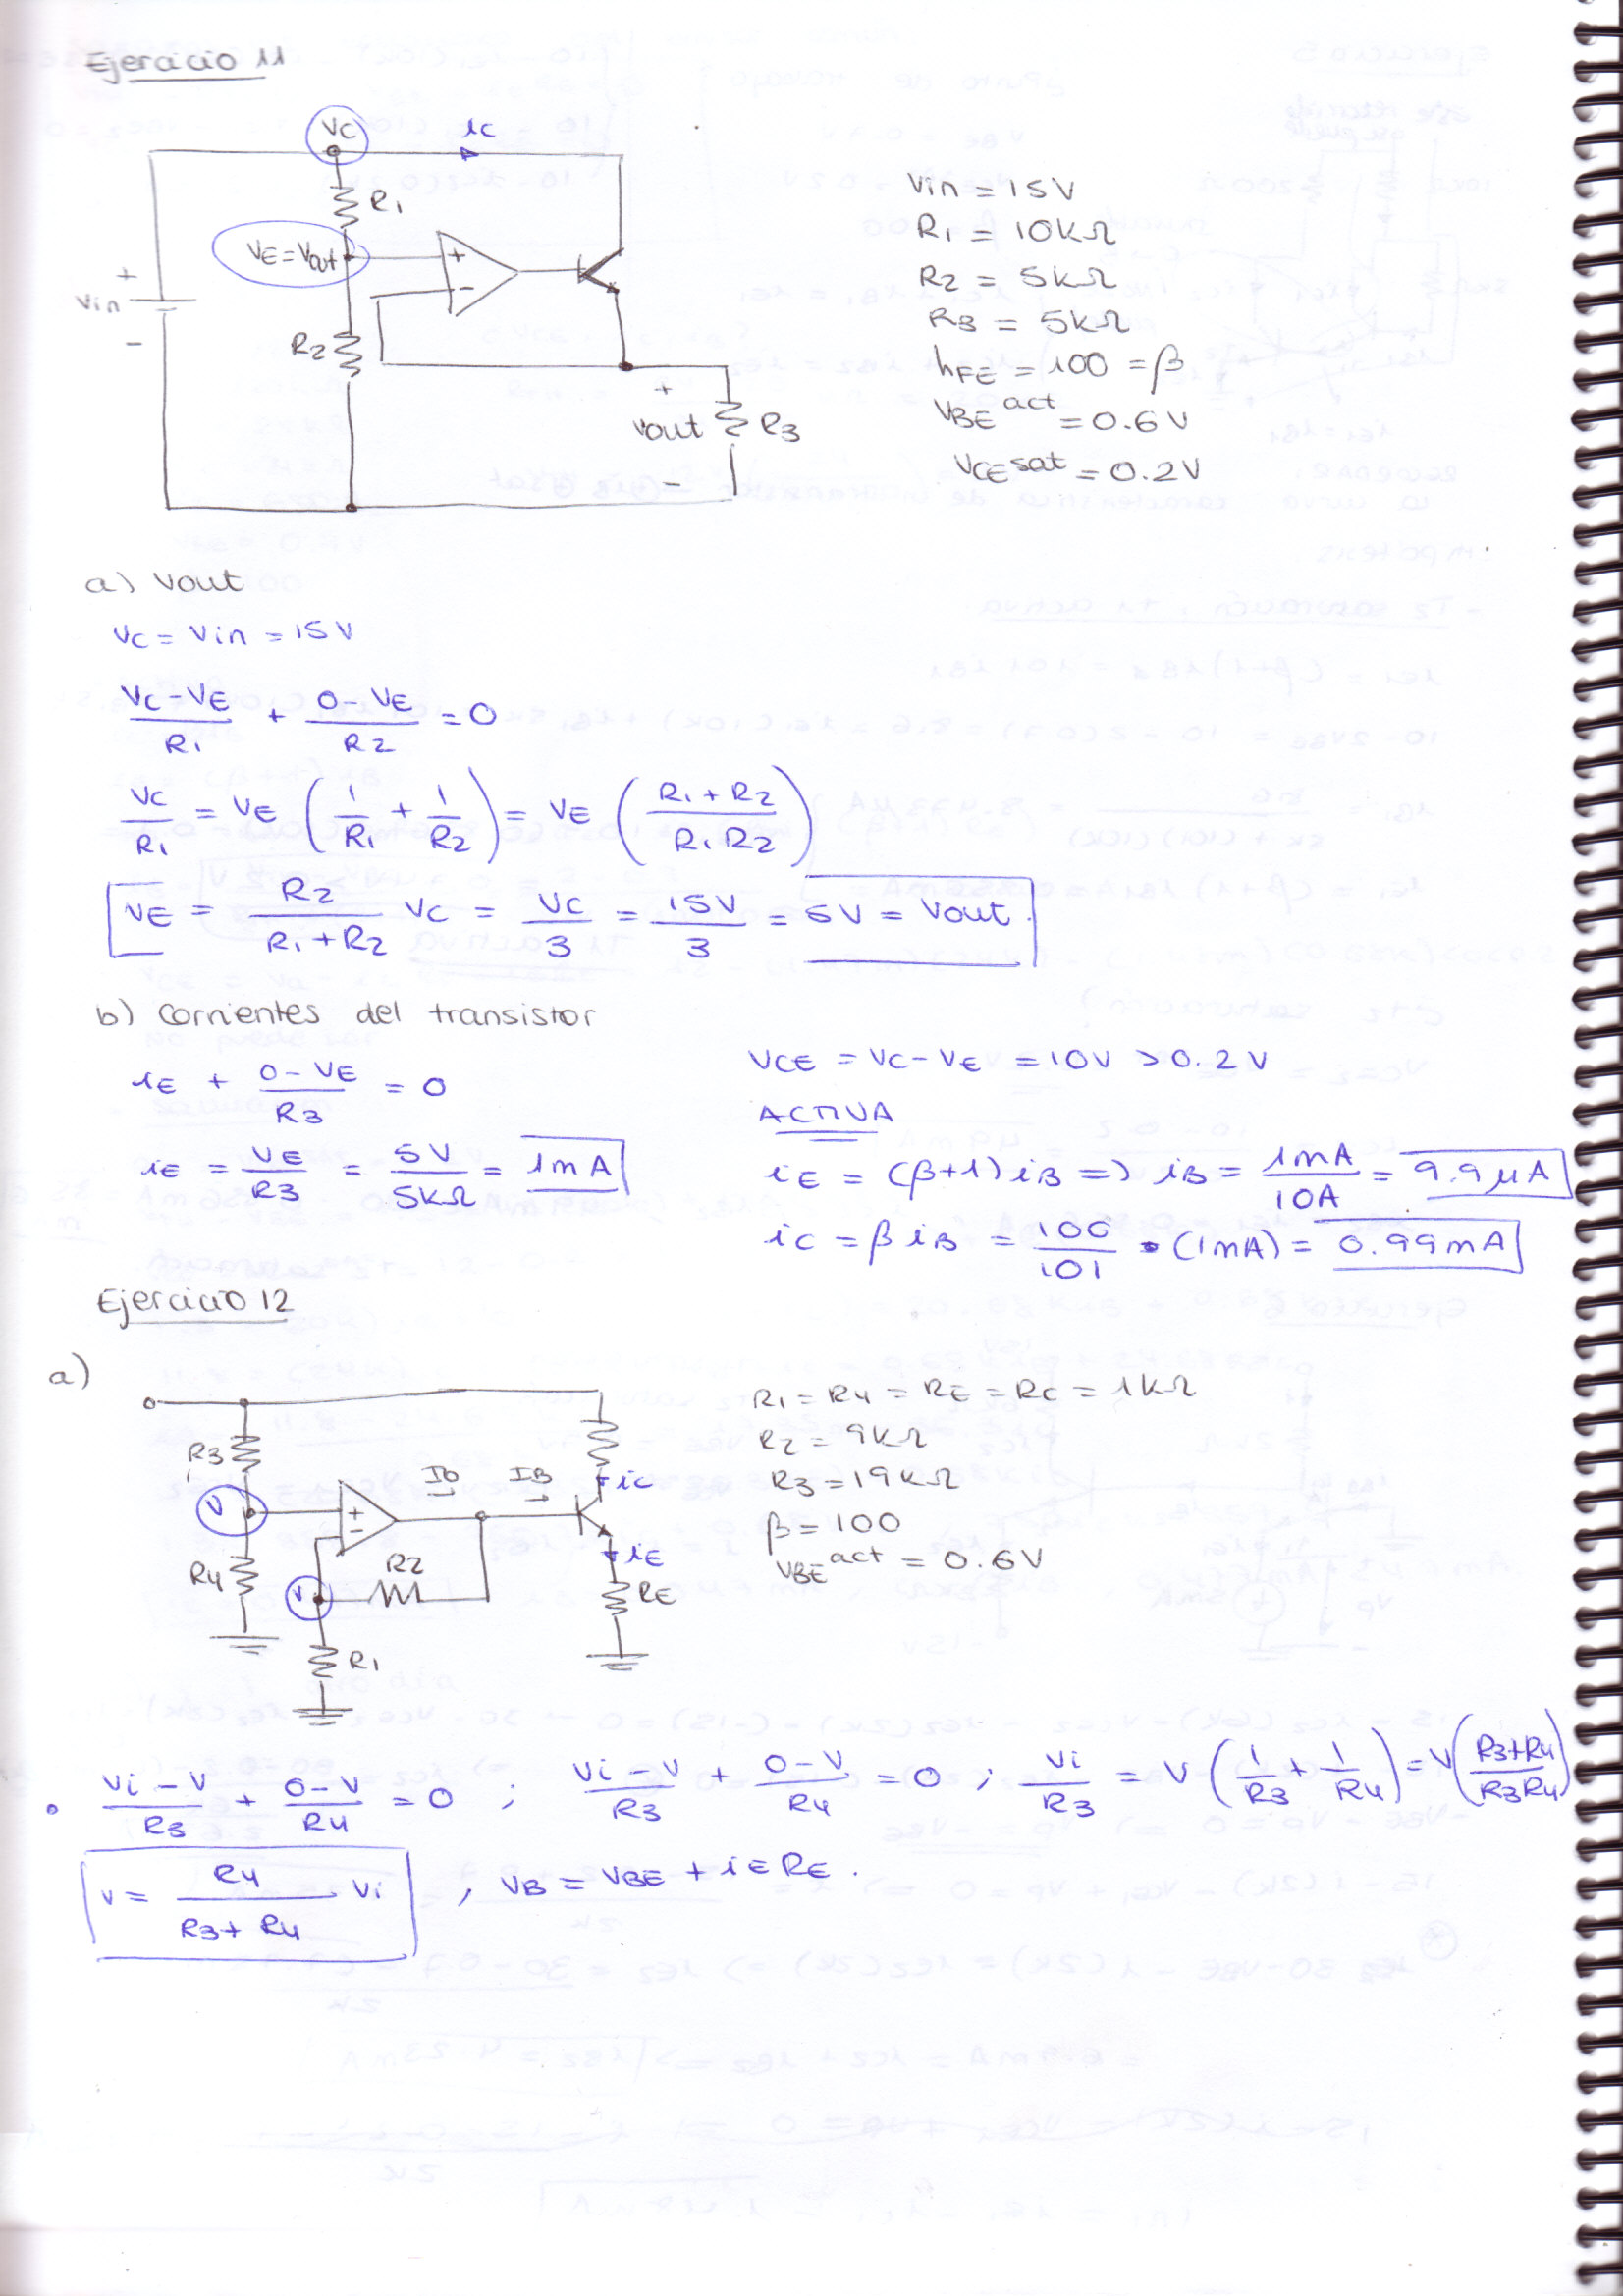 Ejercicio 11
VC
ic
R1
VE=Vout
+
-
+
Vin
-
R2
+
Vout
-
R3
Vin = 15V
R1 = 10kΩ
R2 = 5kΩ
R3 = 5kΩ
hFE = 100 = β
VBE act = 0.6V
VCE sat = 0.2V
a) Vout
VC = Vin = 15V
(VC - VE)/R1 + (0 - VE)/R2 = 0
VC/R1 = VE (1/R1 + 1/R2) = VE ((R1 + R2)/(R1 R2))
VE = R2/(R1 + R2) VC = VC/3 = 15V/3 = 5V = Vout.
b) Corrientes del transistor
iE + (0 - VE)/R3 = 0
iE = VE/R3 = 5V/5kΩ = 1mA
VCE = VC - VE = 10V > 0.2V
ACTIVA
iE = (β+1) iB => iB = 1mA/101 = 9.9 μA
iC = β iB = 100/101 · (1mA) = 0.99mA
Ejercicio 12
a)
R3
V
R4
+
-
Io
IB
iC
iE
R2
V
RE
R1
R1 = R4 = RE = RC = 1kΩ
R2 = 9kΩ
R3 = 19kΩ
β = 100
VBE act = 0.6V
• (Vi - V)/R3 + (0 - V)/R4 = 0 ; (Vi - V)/R3 + (0 - V)/R4 = 0 ; Vi/R3 = V (1/R3 + 1/R4) = V((R3+R4)/(R3R4))
V = R4/(R3 + R4) Vi , VB = VBE + iE RE .